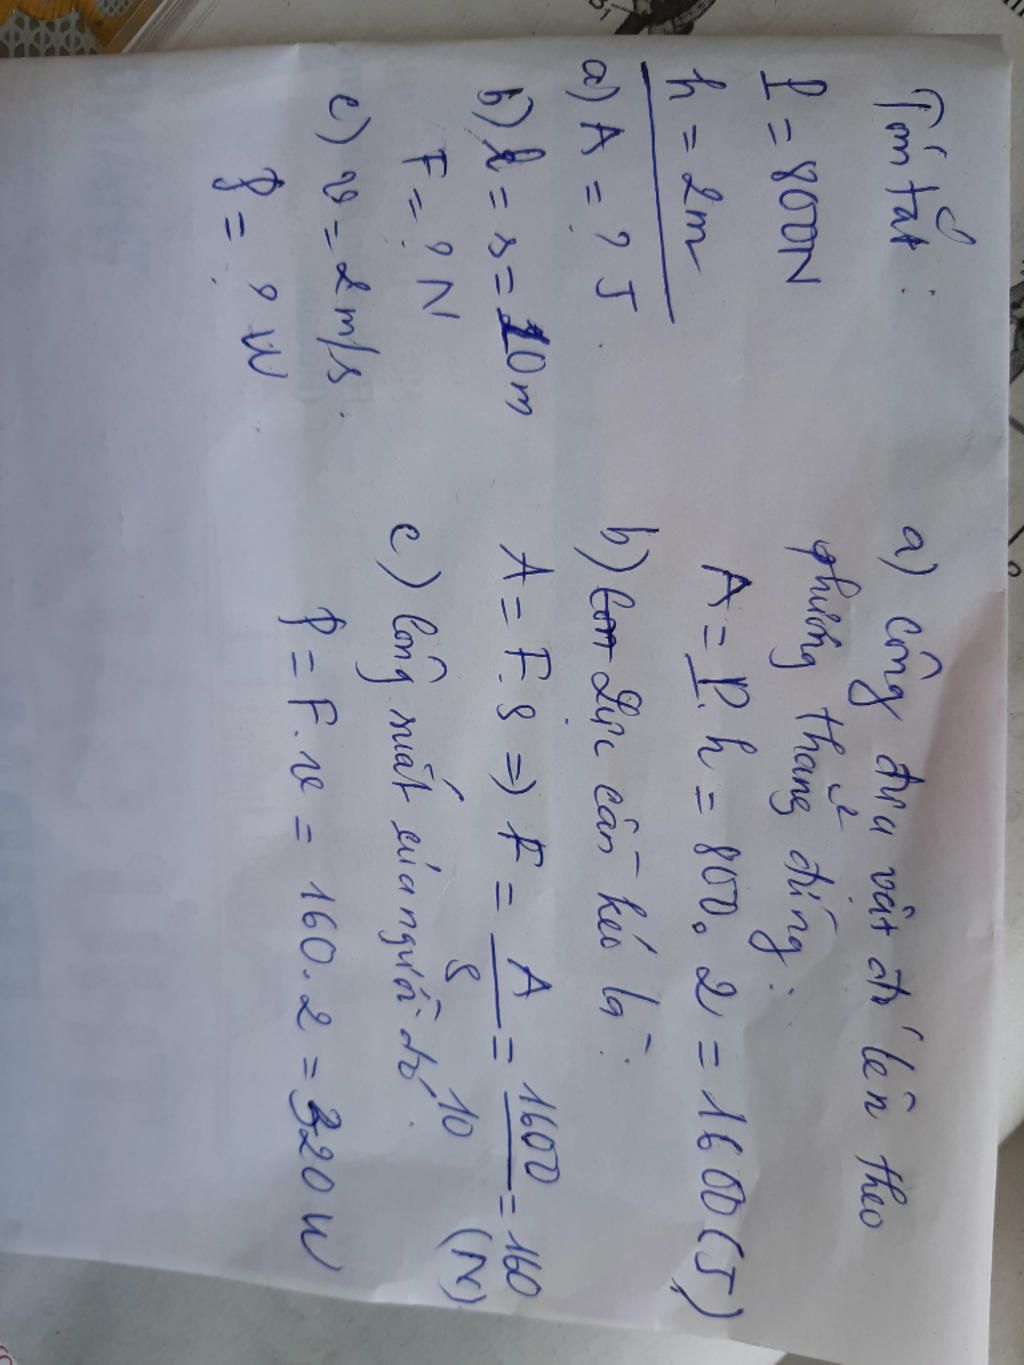 Tóm tắt :
P = 800N
h = 2m
a) A = ? J
b) l = s = 10m
F = ? N
c) v = 2m/s.
P = ? W
a) Công đưa vật đó lên theo
phương thẳng đứng :
A = P. h = 800. 2 = 1600 (J)
b) Lực cần kéo là :
A = F. s => F = A/s = 1600/10 = 160
(N)
c) Công suất của người đó :
P = F. v = 160. 2 = 320 W